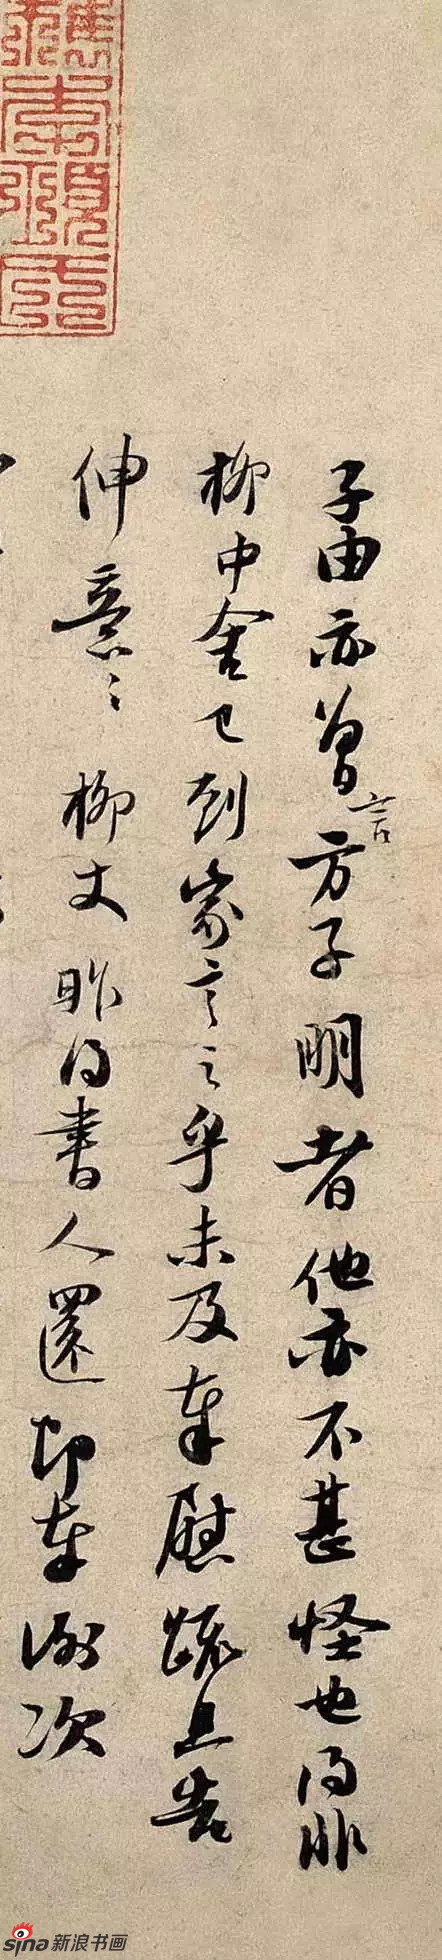 子由亦曾言方子明者他亦不甚怪也得非
柳中舍已到家言之乎未及奉慰疏且告
伸意〻柳丈昨得書人還即奉謝次
sina新浪书画